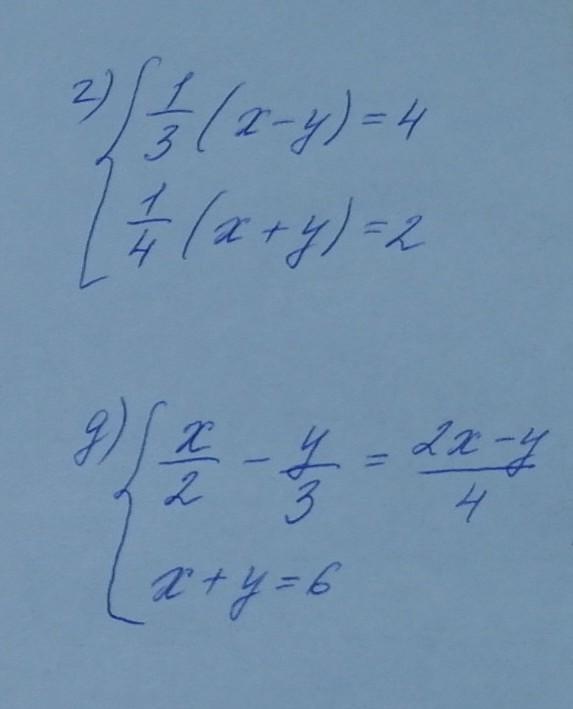 г) { 1/3 (x-y) = 4
1/4 (x+y) = 2
д) { x/2 - y/3 = 2x-y/4
x+y=6